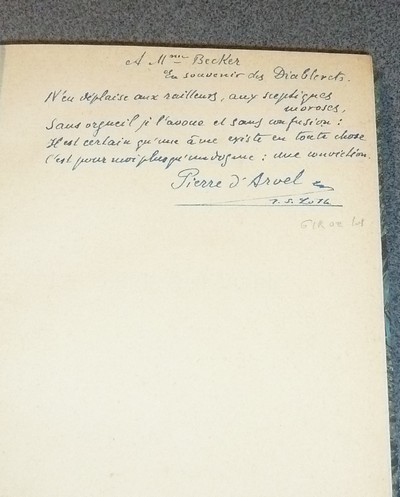 A Mme Becker
En souvenir des Diablerets.
N'en déplaise aux railleurs, aux sceptiques
moroses,
Sans orgueil je l'avoue et sans confusion :
Il est certain qu'une âme existe en toute chose
C'est pour moi plus qu'un dogme : une conviction.
Pierre d'Arvel